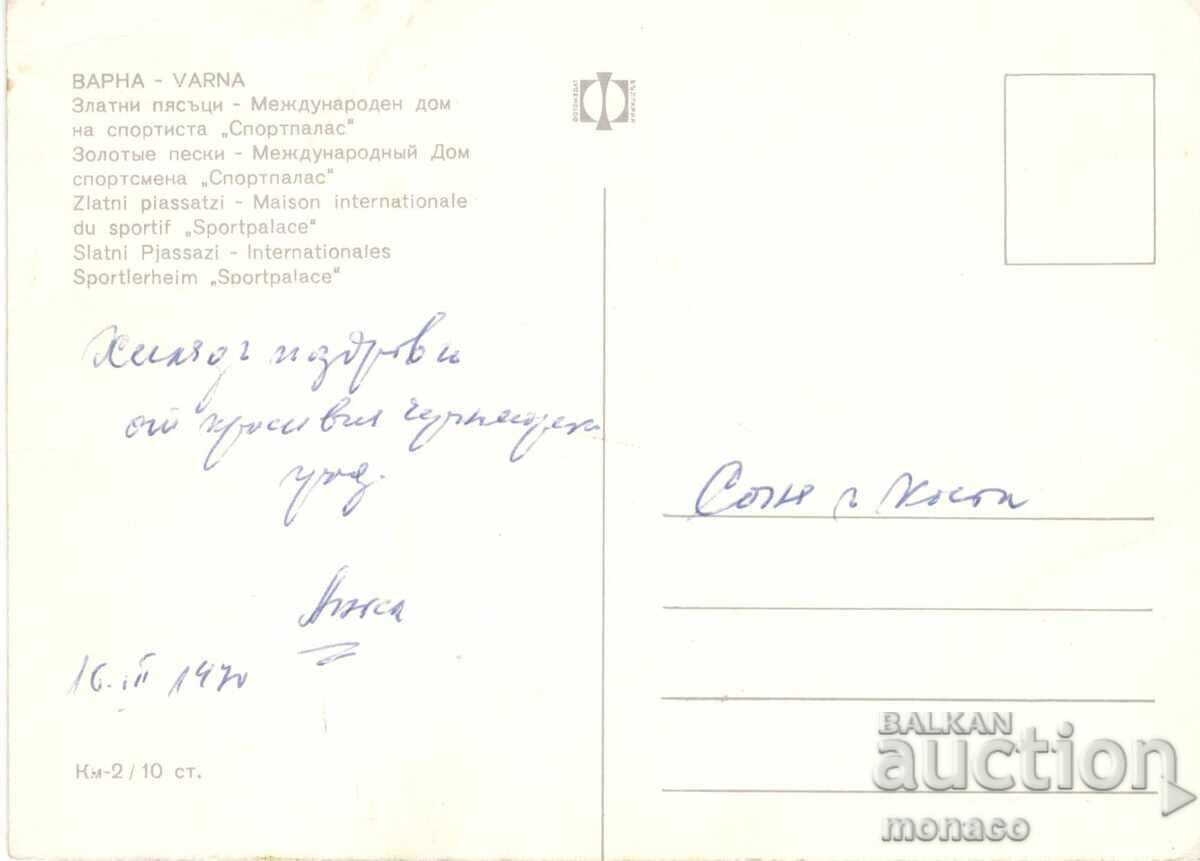 ВАРНА - VARNA
Златни пясъци - Международен дом
на спортиста „Спортпалас“
Золотые пески - Международный Дом
спортсмена „Спортпалас“
Zlatni piassatzi - Maison internationale
du sportif „Sportpalace“
Slatni Pjassazi - Internationales
Sportlerheim „Sportpalace“
ФОТОИЗДАТ
БЪЛГАРИЯ
Хиляди поздрави
от красивия черноморски
град.
16. III 1970
Км-2/10 ст.
Соня и Коста
BALKAN
auction
monaco